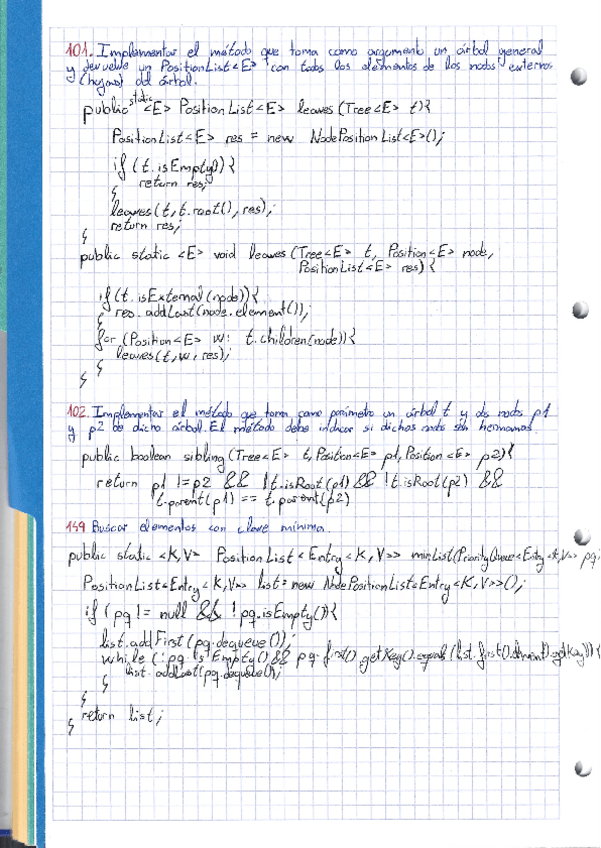 101. Implementar el método que toma como argumento un árbol general
y devuelve un PositionList<E> con todos los elementos de los nodos externos
(hojas) del árbol.
public static <E> PositionList<E> leaves (Tree<E> t){
PositionList<E> res = new NodePositionList<E>();
if (t.isEmpty()){
return res;
}
leaves(t, t.root(), res);
return res;
}
public static <E> void leaves (Tree<E> t, Position<E> node,
PositionList<E> res) {
if (t.isExternal(node)){
res.addLast(node.element());
}
for (Position<E> w: t.children(node)){
leaves(t, w, res);
}
}
102. Implementar el método que toma como parámetro un árbol t y dos nodos p1
y p2 de dicho árbol. El método debe indicar si dichos nodos son hermanos.
public boolean sibling (Tree<E> t, Position<E> p1, Position<E> p2){
return p1 != p2 && !t.isRoot(p1) && !t.isRoot(p2) &&
t.parent(p1) == t.parent(p2)
159 Buscar elementos con clave mínima.
public static <K,V> PositionList<Entry<K,V>> minList(PriorityQueue<Entry<K,V>> pq
PositionList<Entry<K,V>> list = new NodePositionList<Entry<K,V>>();
if (pq != null && !pq.isEmpty()){
list.addFirst(pq.dequeue());
while (!pq.isEmpty() && pq.first().getKey().equals(list.first().element().getKey())){
list.addLast(pq.dequeue());
}
}
return list;
}